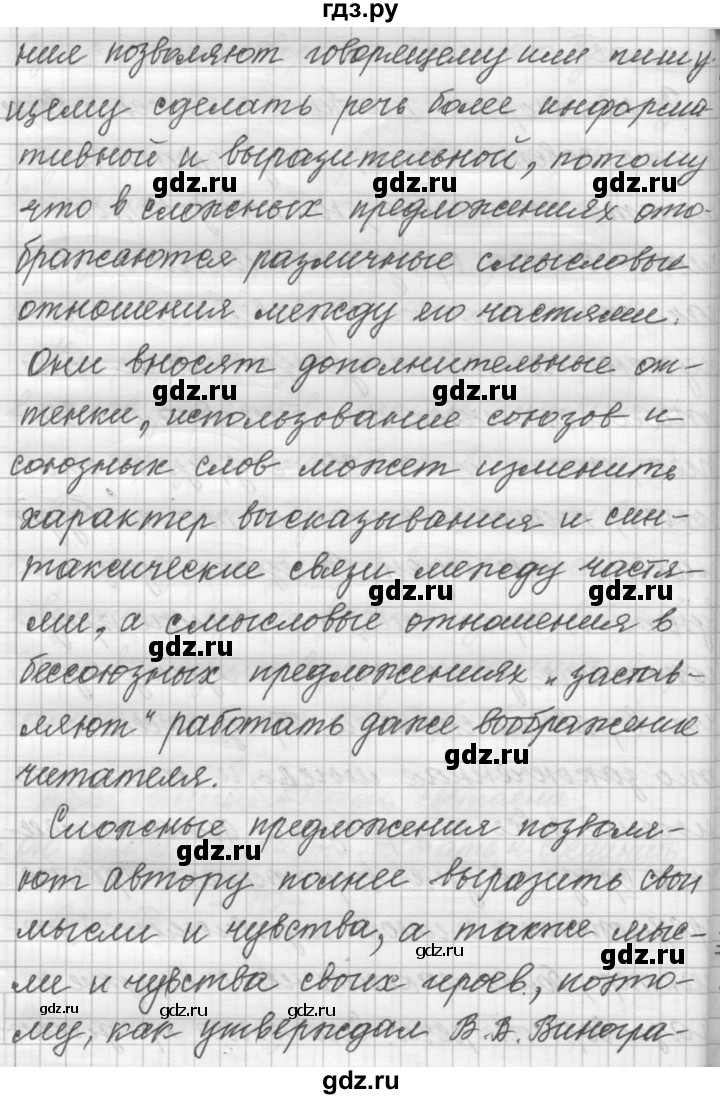 гдз.ру
ния позволяют говорящему или пишу-
щему сделать речь более информа-
тивной и выразительной, потому
gdz.ru gdz.ru gdz.ru
что в сложных предложениях ото-
бражаются различные смысловые
отношения между его частями.
Они вносят дополнительные от-
gdz.ru gdz.ru
тенки, использование союзов и
союзных слов может изменить
характер высказывания и син-
таксические связи между частя-
gdz.ru gdz.ru
ми, а смысловые отношения в
gdz.ru
бессоюзных предложениях „застав-
ляют“ работать даже воображение
gdz.ru
читателя.
Сложные предложения позволя-
gdz.ru
ют автору полнее выразить свои
мысли и чувства, а также мыс-
gdz.ru gdz.ru
ли и чувства своих героев, поэто-
gdz.ru gdz.ru
му, как утверждал В.В. Виногра-
gdz.ru